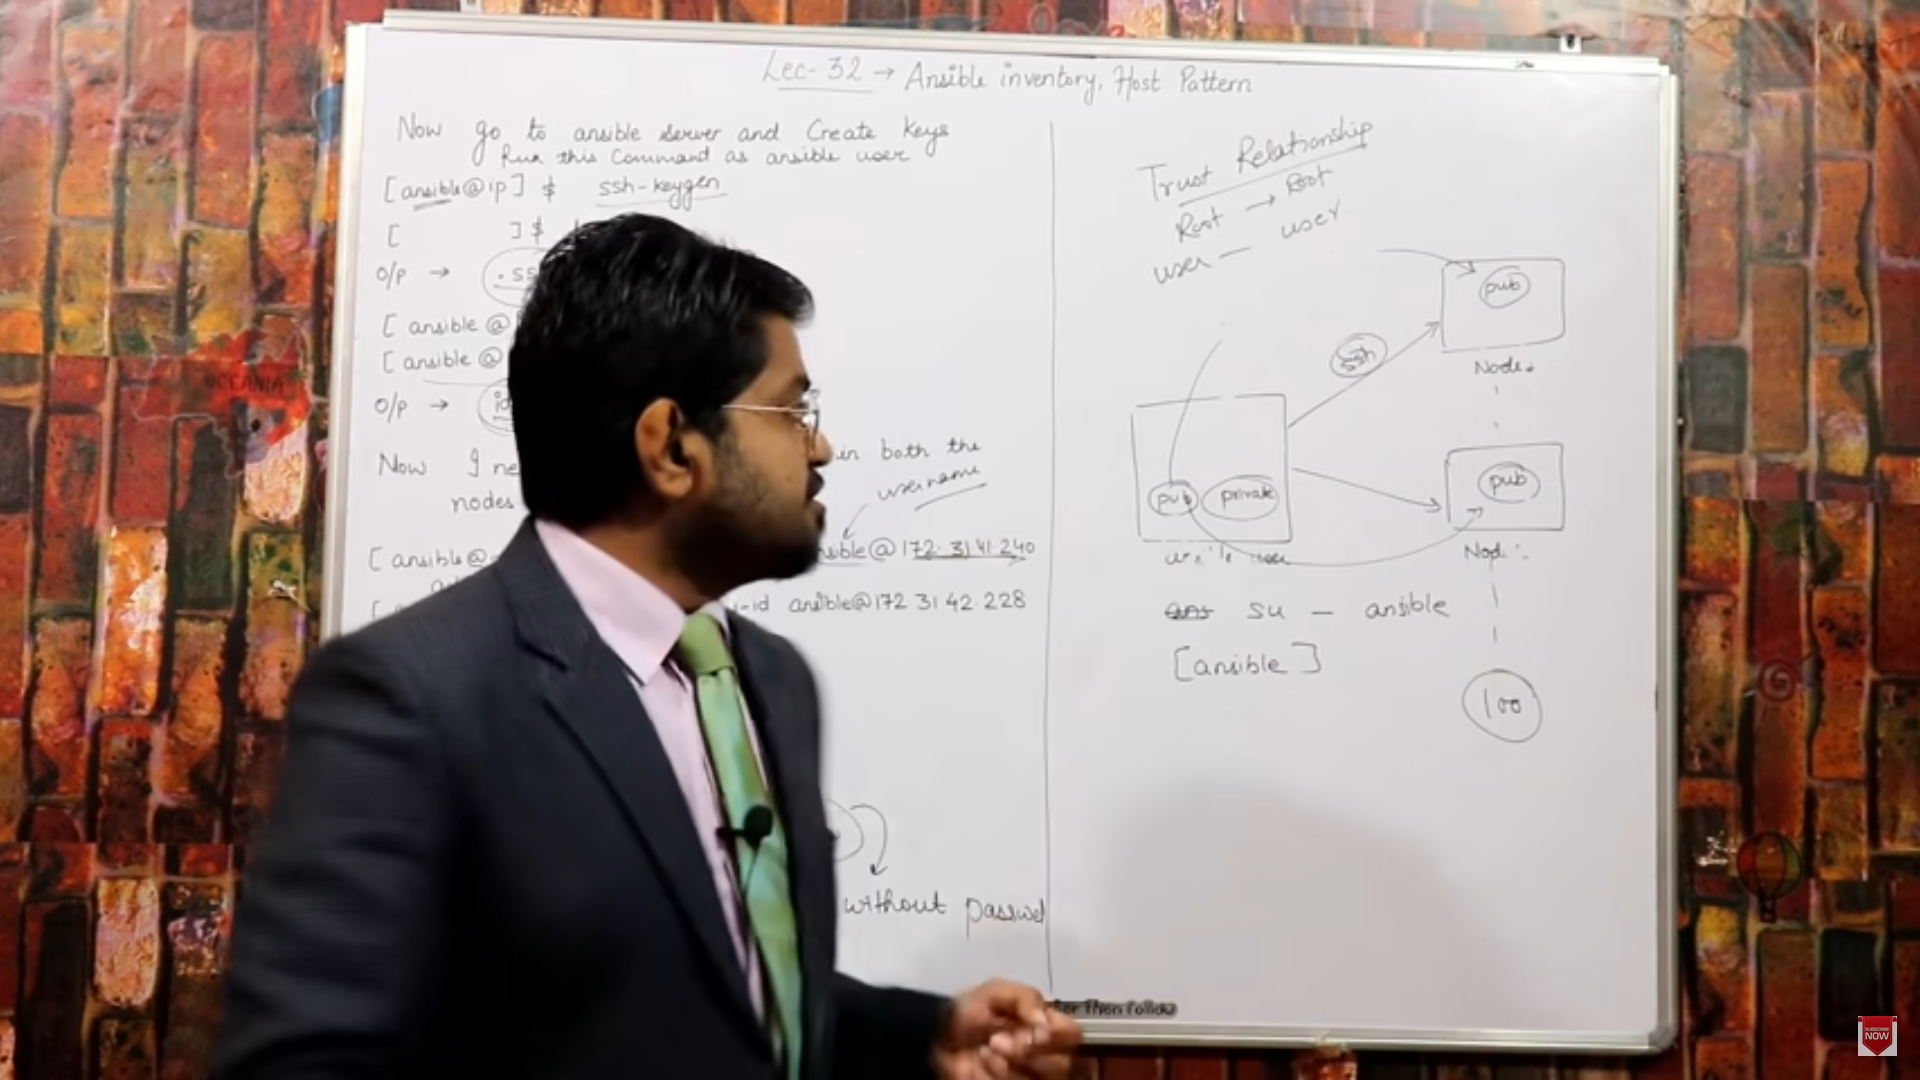 Lec-32 → Ansible inventory, Host Pattern
Now go to ansible server and Create keys
Run this Command as ansible user
[ansible@ip] $ ssh-keygen
[ ] $
O/P → .ss
[ansible@
[ansible@
O/P → id
Now I ne in both the
nodes username
[ansible@ sible@172.31.41.240
-id ansible@172.31.42.228
without passwd
Trust Relationship
Root → Root
user — user
pub
ssh
Node
pub private
pub
su — ansible
[ansible]
100
Then Follow
OCEANIA
SUBSCRIBE
NOW